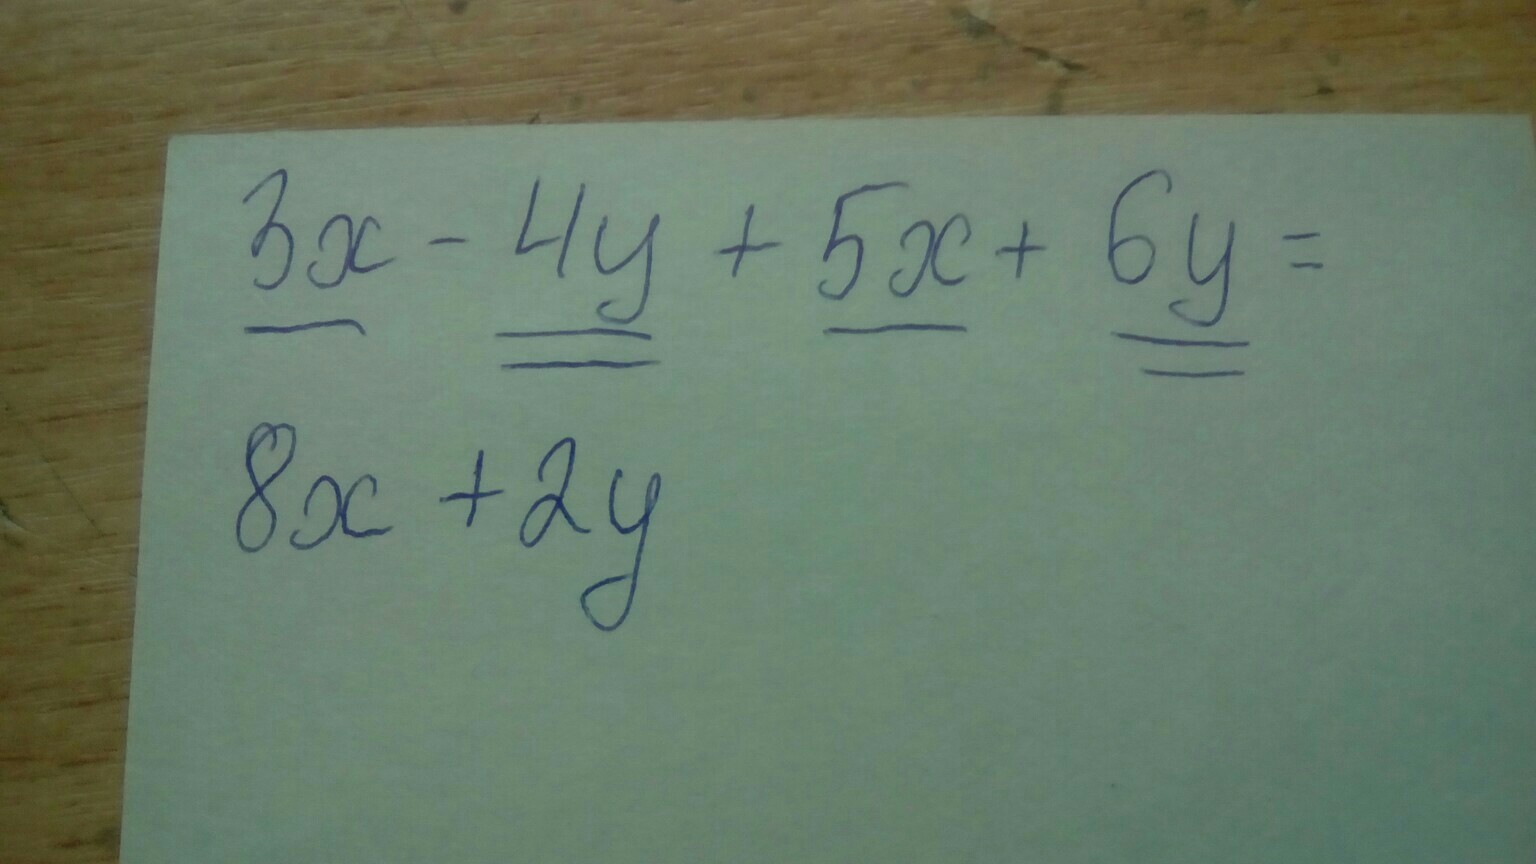 3x - 4y + 5x + 6y =
8x + 2y